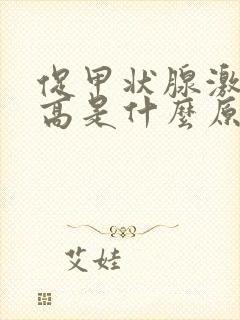 促甲状腺激
高是什麼原
艾娃